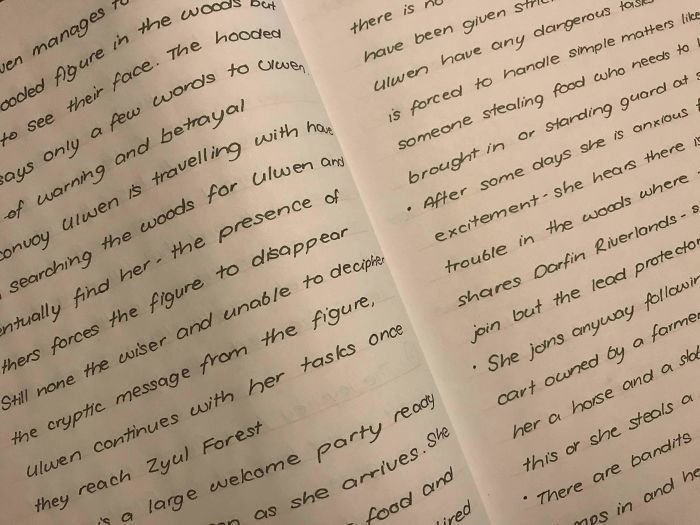 manages to
figure in the woods but
to see their face. The hooded
says only a few words to Ulwen
of warning and betrayal
convoy ulwen is travelling with have
searching the woods for ulwen and
find her - the presence of
forces the figure to disappear
Still none the wiser and unable to decipher
the cryptic message from the figure,
ulwen continues with her tasks once
they reach Zyul Forest
a large welcome party ready
as she arrives. She
food and
there is no
have been given
ulwen have any dangerous tasks
is forced to handle simple matters like
someone stealing food who needs to
brought in or standing guard at
• After some days she is anxious
excitement - she hears there is
trouble in the woods where
shares Darfin Riverlands -
join but the lead protector
• She joins anyway
cart owned by a farmer
her a horse and a
this or she steals a
• There are bandits
in and